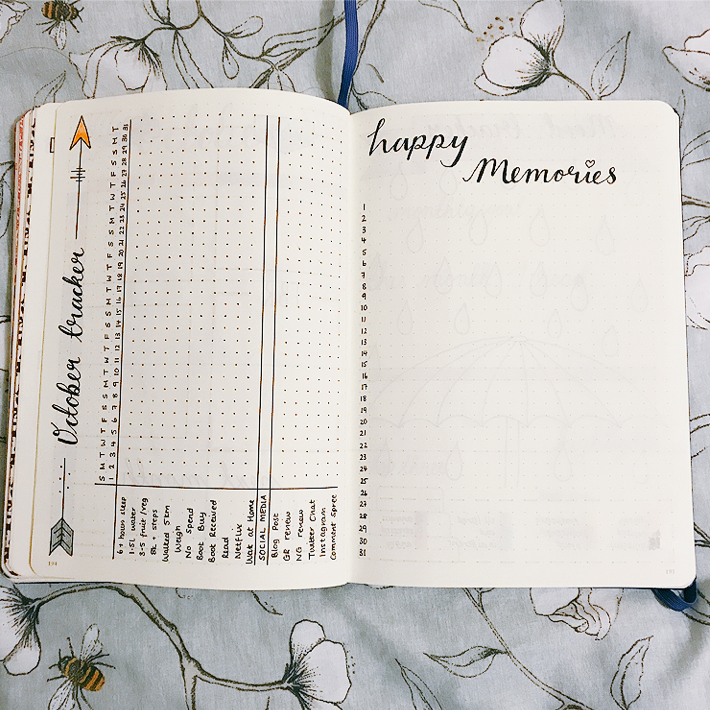 October tracker
S M T W T F S S M T W T F S S M T W T F S S M T W T F S S M T
1 2 3 4 5 6 7 8 9 10 11 12 13 14 15 16 17 18 19 20 21 22 23 24 25 26 27 28 29 30 31
6+ hours sleep
1.5L water
3-5 fruit/veg
8k steps
Walked 5km
Weigh
No Spend
Book Buy
Book Received
Read
Netflix
at Home
SOCIAL MEDIA
Blog Post
GR renew
NG renew
Twitter Chat
Instagram
Comment Spree
happy
Memories
1
2
3
4
5
6
7
8
9
10
11
12
13
14
15
16
17
18
19
20
21
22
23
24
25
26
27
28
29
30
31